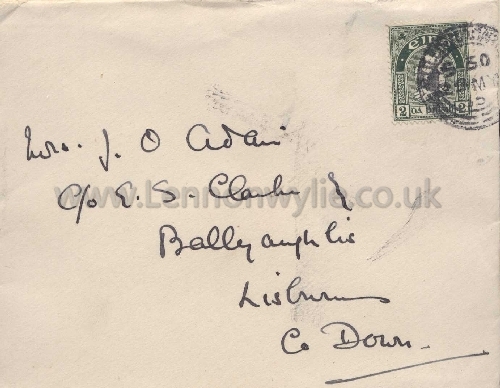 EIRE
2 DA 2
Mrs. J. O Adair
www.Lennonwylie.co.uk
c/o E. S. Clarke
Lisburn
Co Down.